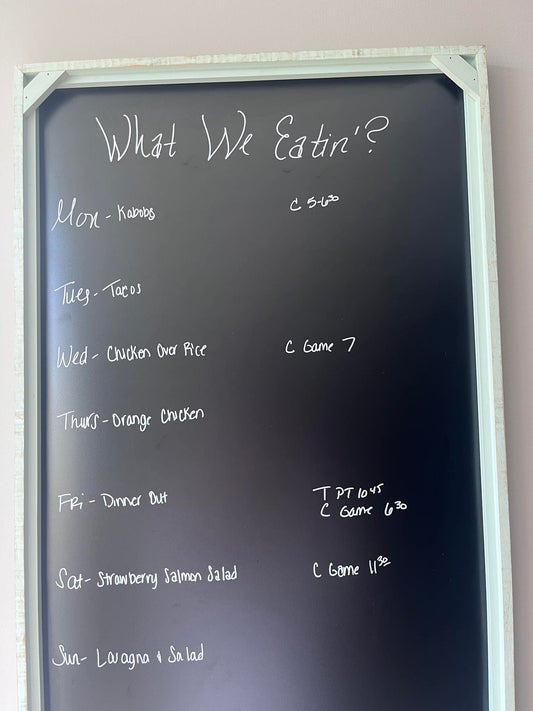 What We Eatin'?
Mon - Kabobs C 5-6³⁰
Tues - Tacos
Wed - Chicken Over Rice C Game 7
Thurs - Orange Chicken
Fri - Dinner Out T PT 10⁴⁵
C Game 6³⁰
Sat - Strawberry Salmon Salad C Game 11³⁰
Sun - Lavagna & Salad